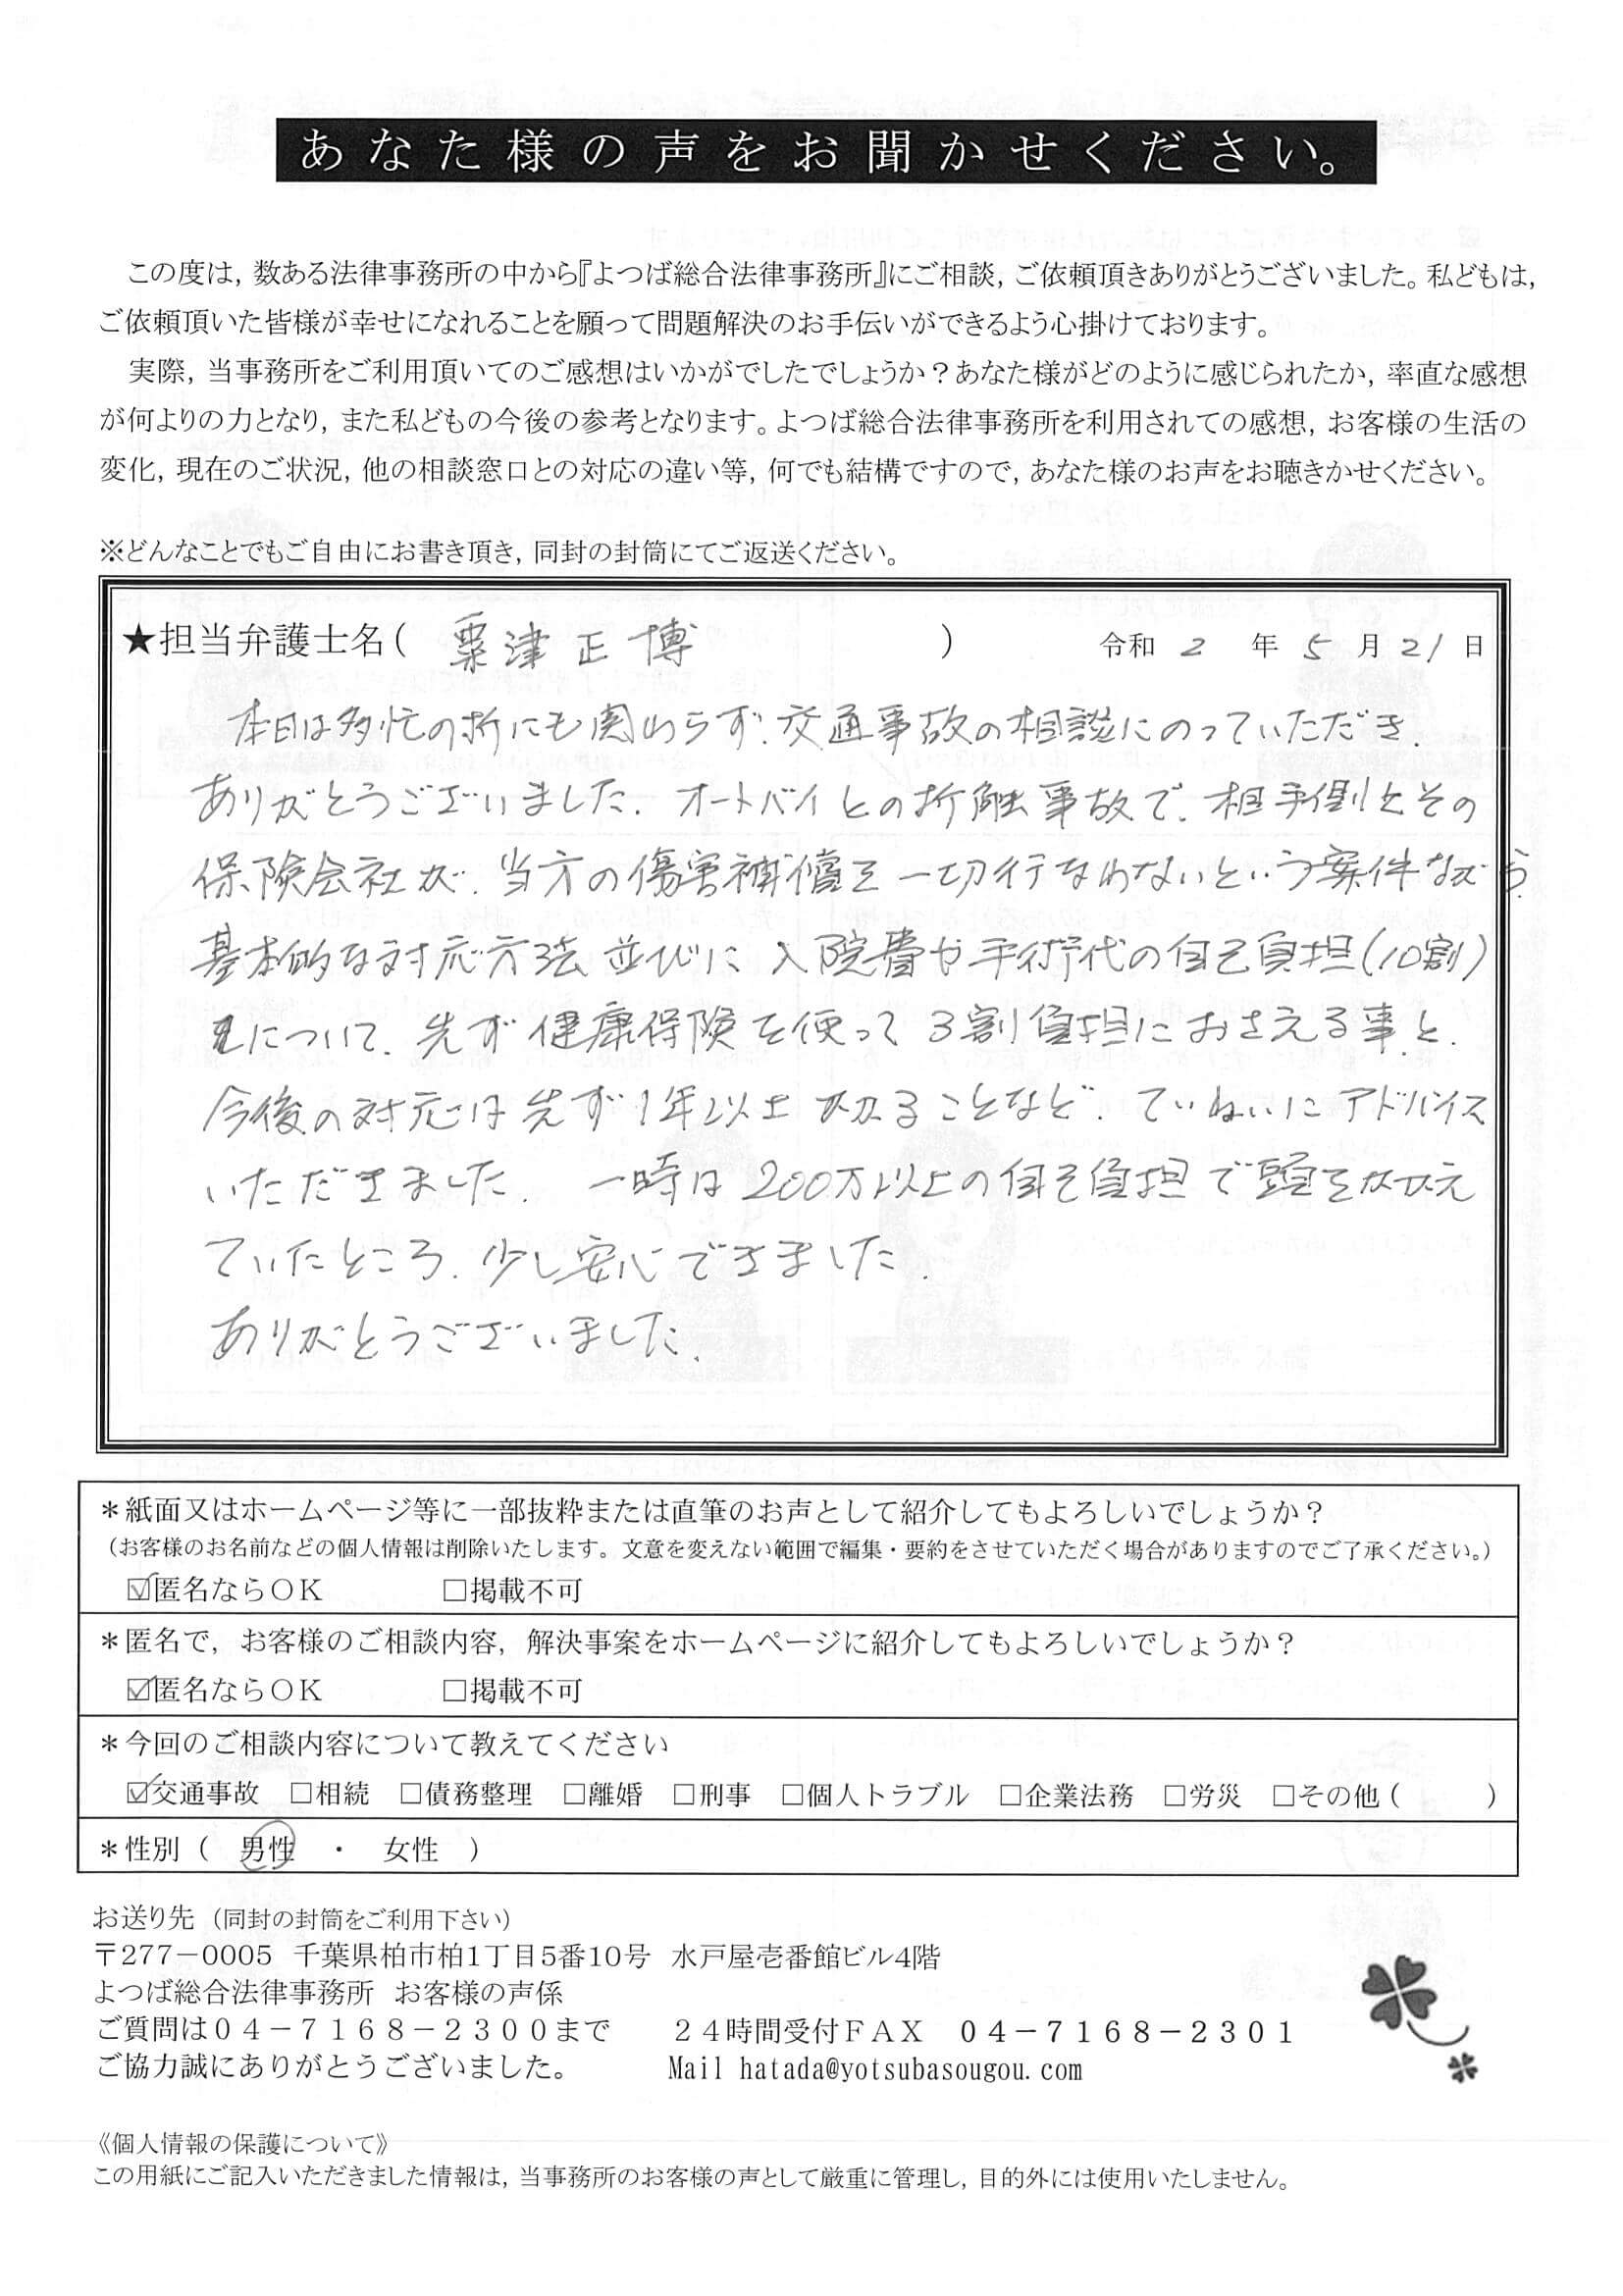 あなた様の声をお聞かせください。
この度は，数ある法律事務所の中から『よつば総合法律事務所』にご相談，ご依頼頂きありがとうございました。私どもは，
ご依頼頂いた皆様が幸せになれることを願って問題解決のお手伝いができるよう心掛けております。
実際，当事務所をご利用頂いてのご感想はいかがでしたでしょうか？あなた様がどのように感じられたか，率直な感想
が何よりの力となり，また私どもの今後の参考となります。よつば総合法律事務所を利用されての感想，お客様の生活の
変化，現在のご状況，他の相談窓口との対応の違い等，何でも結構ですので，あなた様のお声をお聴きかせください。
※どんなことでもご自由にお書き頂き，同封の封筒にてご返送ください。
★担当弁護士名（ 粟津正博 ） 令和 2 年 5 月 21 日
本日は多忙の折にも関わらず、交通事故の相談にのっていただき、
ありがとうございました。オートバイとの折触事故で、相手側とその
保険会社が、当方の傷害補償を一切行なわないという案件ながら、
基本的な対応方法並びに、入院費や手術代の自己負担(10割)
について、先ず健康保険を使って3割負担におさえる事、と、
今後の対応は先ず1年以上かかることなど、ていねいにアドバイス
いただきました。一時は200万以上の自己負担で頭をかかえ
ていたところ、少し安心できました。
ありがとうございました。
＊紙面又はホームページ等に一部抜粋または直筆のお声として紹介してもよろしいでしょうか？
（お客様のお名前などの個人情報は削除いたします。文意を変えない範囲で編集・要約をさせていただく場合がありますのでご了承ください。）
☑匿名ならＯＫ □掲載不可
＊匿名で，お客様のご相談内容，解決事案をホームページに紹介してもよろしいでしょうか？
☑匿名ならＯＫ □掲載不可
＊今回のご相談内容について教えてください
☑交通事故 □相続 □債務整理 □離婚 □刑事 □個人トラブル □企業法務 □労災 □その他（ ）
＊性別（ 男性 ・ 女性 ）
お送り先（同封の封筒をご利用下さい）
〒277－0005 千葉県柏市柏1丁目5番10号 水戸屋壱番館ビル4階
よつば総合法律事務所 お客様の声係
ご質問は０４－７１６８－２３００まで ２４時間受付ＦＡＸ ０４－７１６８－２３０１
ご協力誠にありがとうございました。 Mail hatada@yotsubasougou.com
《個人情報の保護について》
この用紙にご記入いただきました情報は，当事務所のお客様の声として厳重に管理し，目的外には使用いたしません。